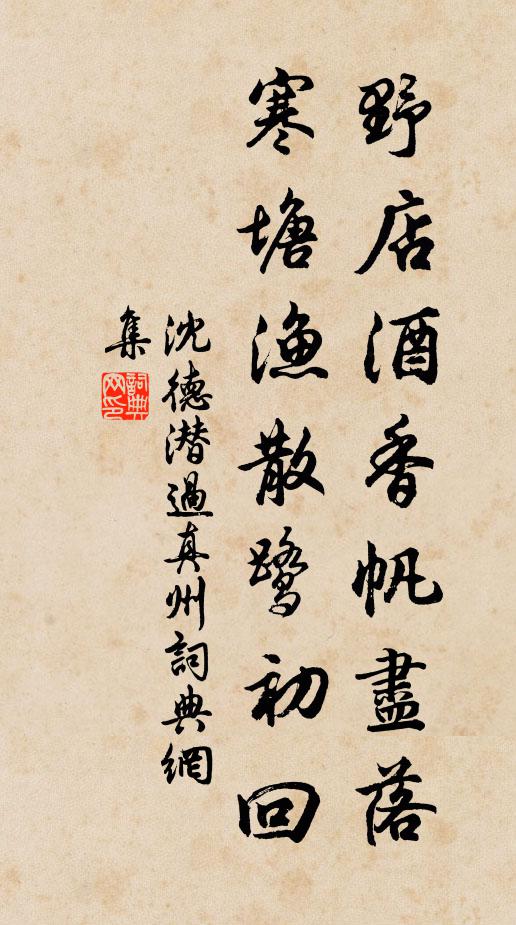 野店酒香帆盡落
寒塘漁散鷺初回
沈德潜過真州詞典網
集
詞典
网印